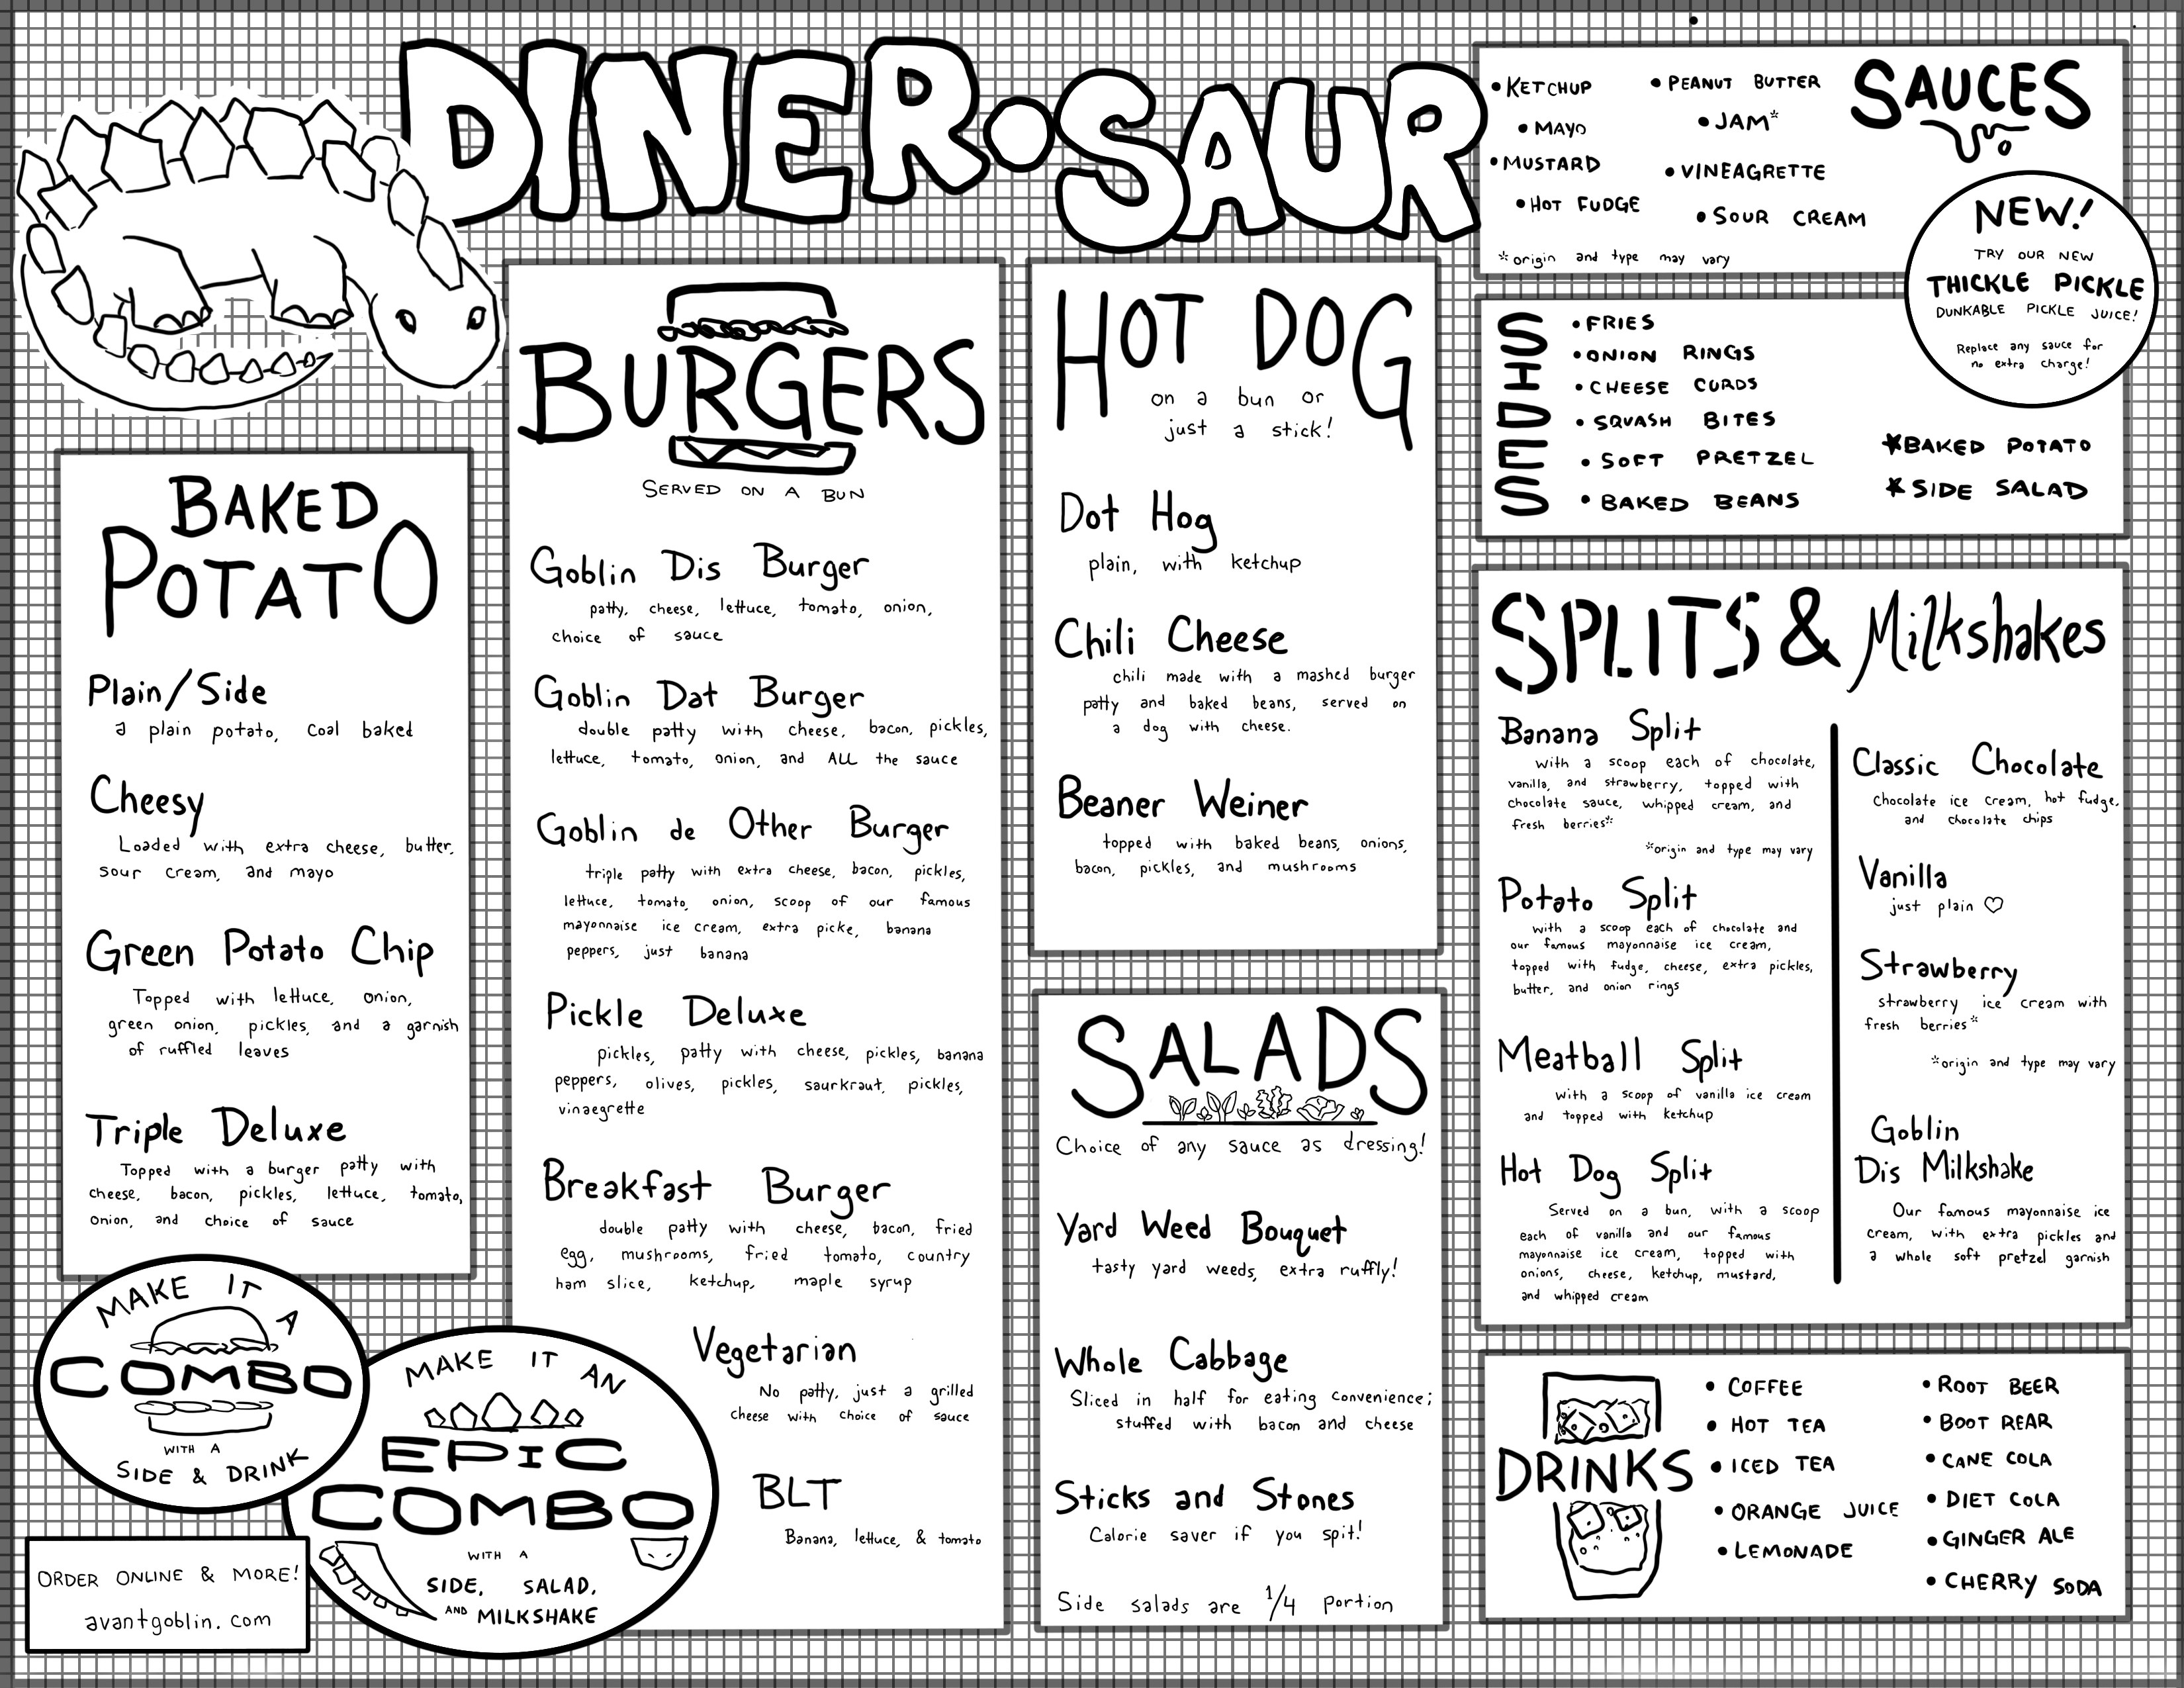 DINER•SAUR
BAKED
POTATO
Plain/Side
a plain potato, coal baked
Cheesy
Loaded with extra cheese, butter,
sour cream, and mayo
Green Potato Chip
Topped with lettuce, onion,
green onion, pickles, and a garnish
of ruffled leaves
Triple Deluxe
Topped with a burger patty with
cheese, bacon, pickles, lettuce, tomato,
onion, and choice of sauce
MAKE IT A
COMBO
WITH A
SIDE & DRINK
MAKE IT AN
EPIC
COMBO
WITH A
SIDE, SALAD,
AND MILKSHAKE
ORDER ONLINE & MORE!
avantgoblin.com
BURGERS
SERVED ON A BUN
Goblin Dis Burger
patty, cheese, lettuce, tomato, onion,
choice of sauce
Goblin Dat Burger
double patty with cheese, bacon, pickles,
lettuce, tomato, onion, and ALL the sauce
Goblin de Other Burger
triple patty with extra cheese, bacon, pickles,
lettuce, tomato, onion, scoop of our famous
mayonnaise ice cream, extra picke, banana
peppers, just banana
Pickle Deluxe
pickles, patty with cheese, pickles, banana
peppers, olives, pickles, saurkraut, pickles,
vinaegrette
Breakfast Burger
double patty with cheese, bacon, fried
egg, mushrooms, fried tomato, country
ham slice, ketchup, maple syrup
Vegetarian
No patty, just a grilled
cheese with choice of sauce
BLT
Banana, lettuce, & tomato
HOT DOG
on a bun or
just a stick!
Dot Hog
plain, with ketchup
Chili Cheese
chili made with a mashed burger
patty and baked beans, served on
a dog with cheese.
Beaner Weiner
topped with baked beans, onions,
bacon, pickles, and mushrooms
SALADS
Choice of any sauce as dressing!
Yard Weed Bouquet
tasty yard weeds, extra ruffly!
Whole Cabbage
Sliced in half for eating convenience;
stuffed with bacon and cheese
Sticks and Stones
Calorie saver if you spit!
Side salads are 1/4 portion
SAUCES
•KETCHUP
•MAYO
•MUSTARD
•HOT FUDGE
•PEANUT BUTTER
•JAM*
•VINEAGRETTE
•SOUR CREAM
*origin and type may vary
NEW!
TRY OUR NEW
THICKLE PICKLE
DUNKABLE PICKLE JUICE!
Replace any sauce for
no extra charge!
SIDES
•FRIES
•ONION RINGS
•CHEESE CURDS
•SQUASH BITES
•SOFT PRETZEL
•BAKED BEANS
★BAKED POTATO
★SIDE SALAD
SPLITS & Milkshakes
Banana Split
with a scoop each of chocolate,
vanilla, and strawberry, topped with
chocolate sauce, whipped cream, and
fresh berries*
*origin and type may vary
Potato Split
with a scoop each of chocolate and
our famous mayonnaise ice cream,
topped with fudge, cheese, extra pickles,
butter, and onion rings
Meatball Split
with a scoop of vanilla ice cream
and topped with ketchup
Hot Dog Split
Served on a bun, with a scoop
each of vanilla and our famous
mayonnaise ice cream, topped with
onions, cheese, ketchup, mustard,
and whipped cream
Classic Chocolate
Chocolate ice cream, hot fudge,
and chocolate chips
Vanilla
just plain ♡
Strawberry
strawberry ice cream with
fresh berries*
*origin and type may vary
Goblin
Dis Milkshake
Our famous mayonnaise ice
cream, with extra pickles and
a whole soft pretzel garnish
DRINKS
•COFFEE
•HOT TEA
•ICED TEA
•ORANGE JUICE
•LEMONADE
•ROOT BEER
•BOOT REAR
•CANE COLA
•DIET COLA
•GINGER ALE
•CHERRY SODA